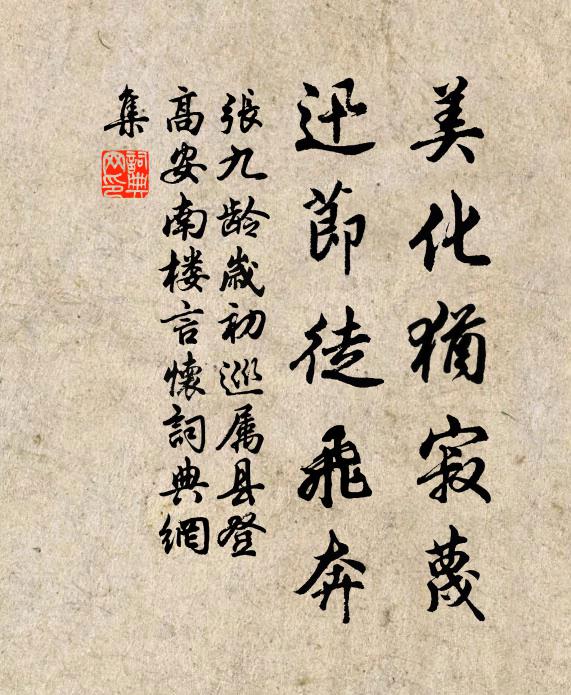 美化犹寂蔑
迅節徒飛奔
張九龄歳初巡属县登
高安南楼言懷詞典網
集
詞典网印